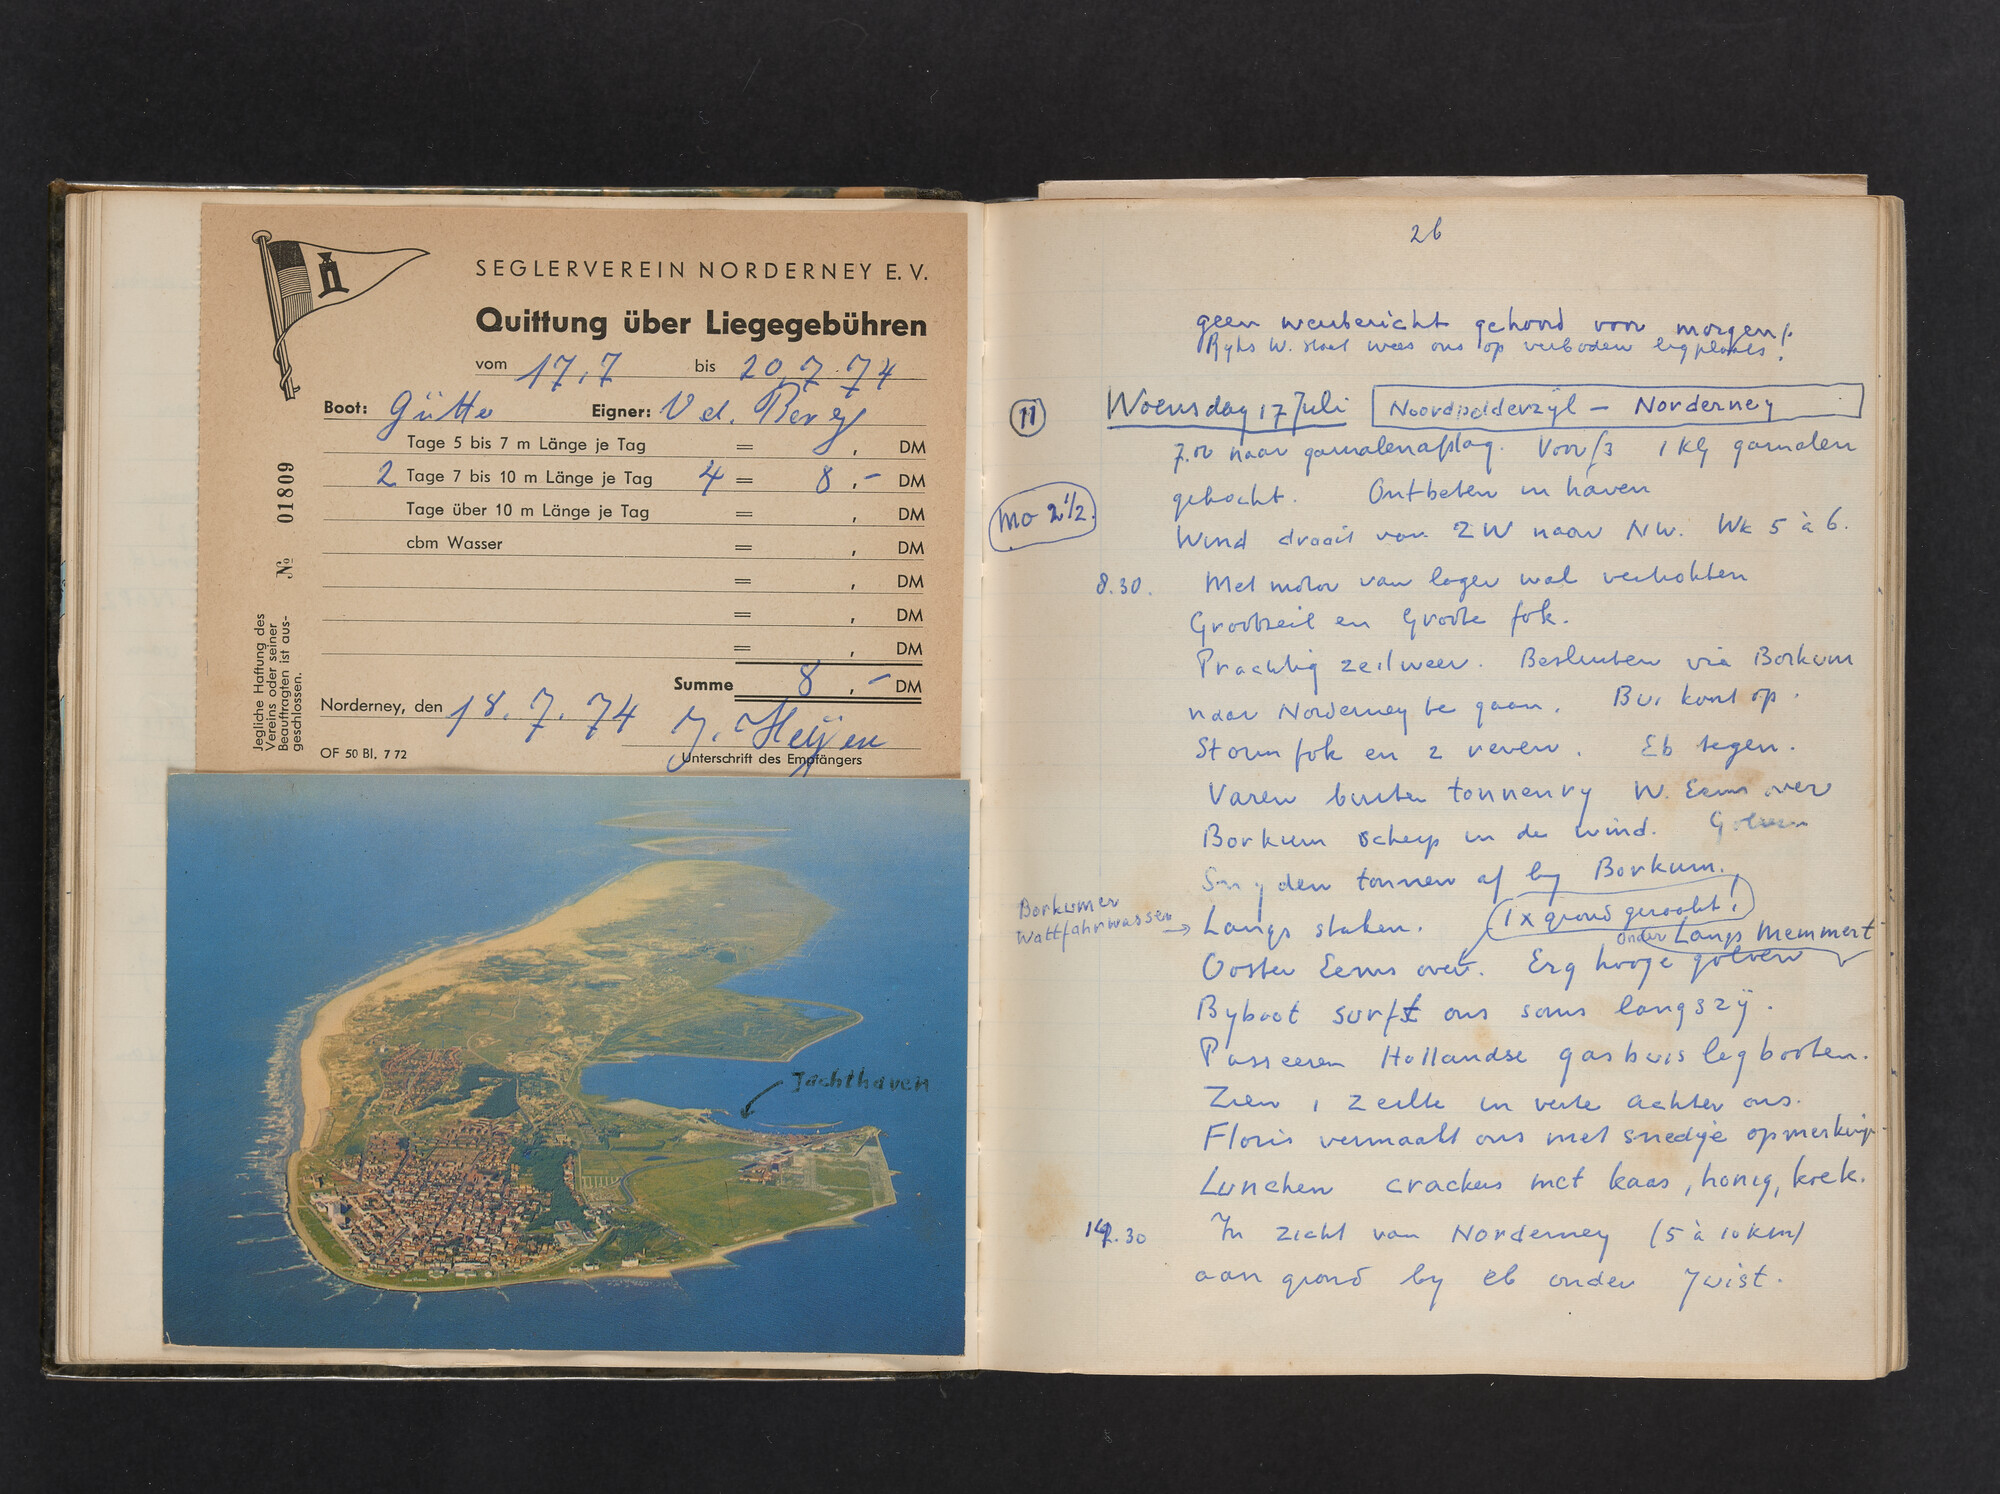 SEGLERVEREIN NORDERNEY E. V.
Quittung über Liegegebühren
vom 17.7 bis 20.7.74
Boot: Gütte Eigner: V d. Berg
Tage 5 bis 7 m Länge je Tag = , DM
2 Tage 7 bis 10 m Länge je Tag 4 = 8 ,- DM
Tage über 10 m Länge je Tag = , DM
cbm Wasser = , DM
= , DM
= , DM
= , DM
Summe 8 ,- DM
Norderney, den 18.7.74 J. Heyen
OF 50 Bl. 7 72 Unterschrift des Empfängers
№ 01809
Jegliche Haftung des
Vereins oder seiner
Beauftragten ist aus-
geschlossen.
Jachthaven
26
geen weerbericht gehoord voor morgen!
Ryks W. staat wees ons op verboden ligplaats!
11 Woensdag 17 Juli Noordpolderzyl - Norderney
7.00 naar garnalenafslag. Voor f3 1 KG garnalen
gekocht. Ontbeten in haven
mo 2 1/2.
Wind draait van ZW naar NW. Wk 5 à 6.
8.30. Met motor van lager wal vertrokken
Grootzeil en Groote fok.
Prachtig zeilweer. Besluiten via Borkum
naar Norderney te gaan. Bui komt op.
Stormfok en 2 reven. Eb tegen.
Varen buiten tonnenry W. Eems over
Borkum scherp in de wind. Golven
Snyden tonnen af by Borkum.
Borkumer
Wattfahrwasser → Langs staken. 1 x grond geraakt!
onder Langs Memmert
Ooster Eems over. Erg hooge golven
Byboot surft ons soms langszÿ.
Passeeren Hollandse gasbuis legbooten.
Zien 1 zeiltje in verte achter ons.
Floris vermaakt ons met snedige opmerking
Lunchen crackers met kaas, honig, koek.
14.30 In zicht van Norderney (5 à 10 km)
aan grond by eb onder Juist.